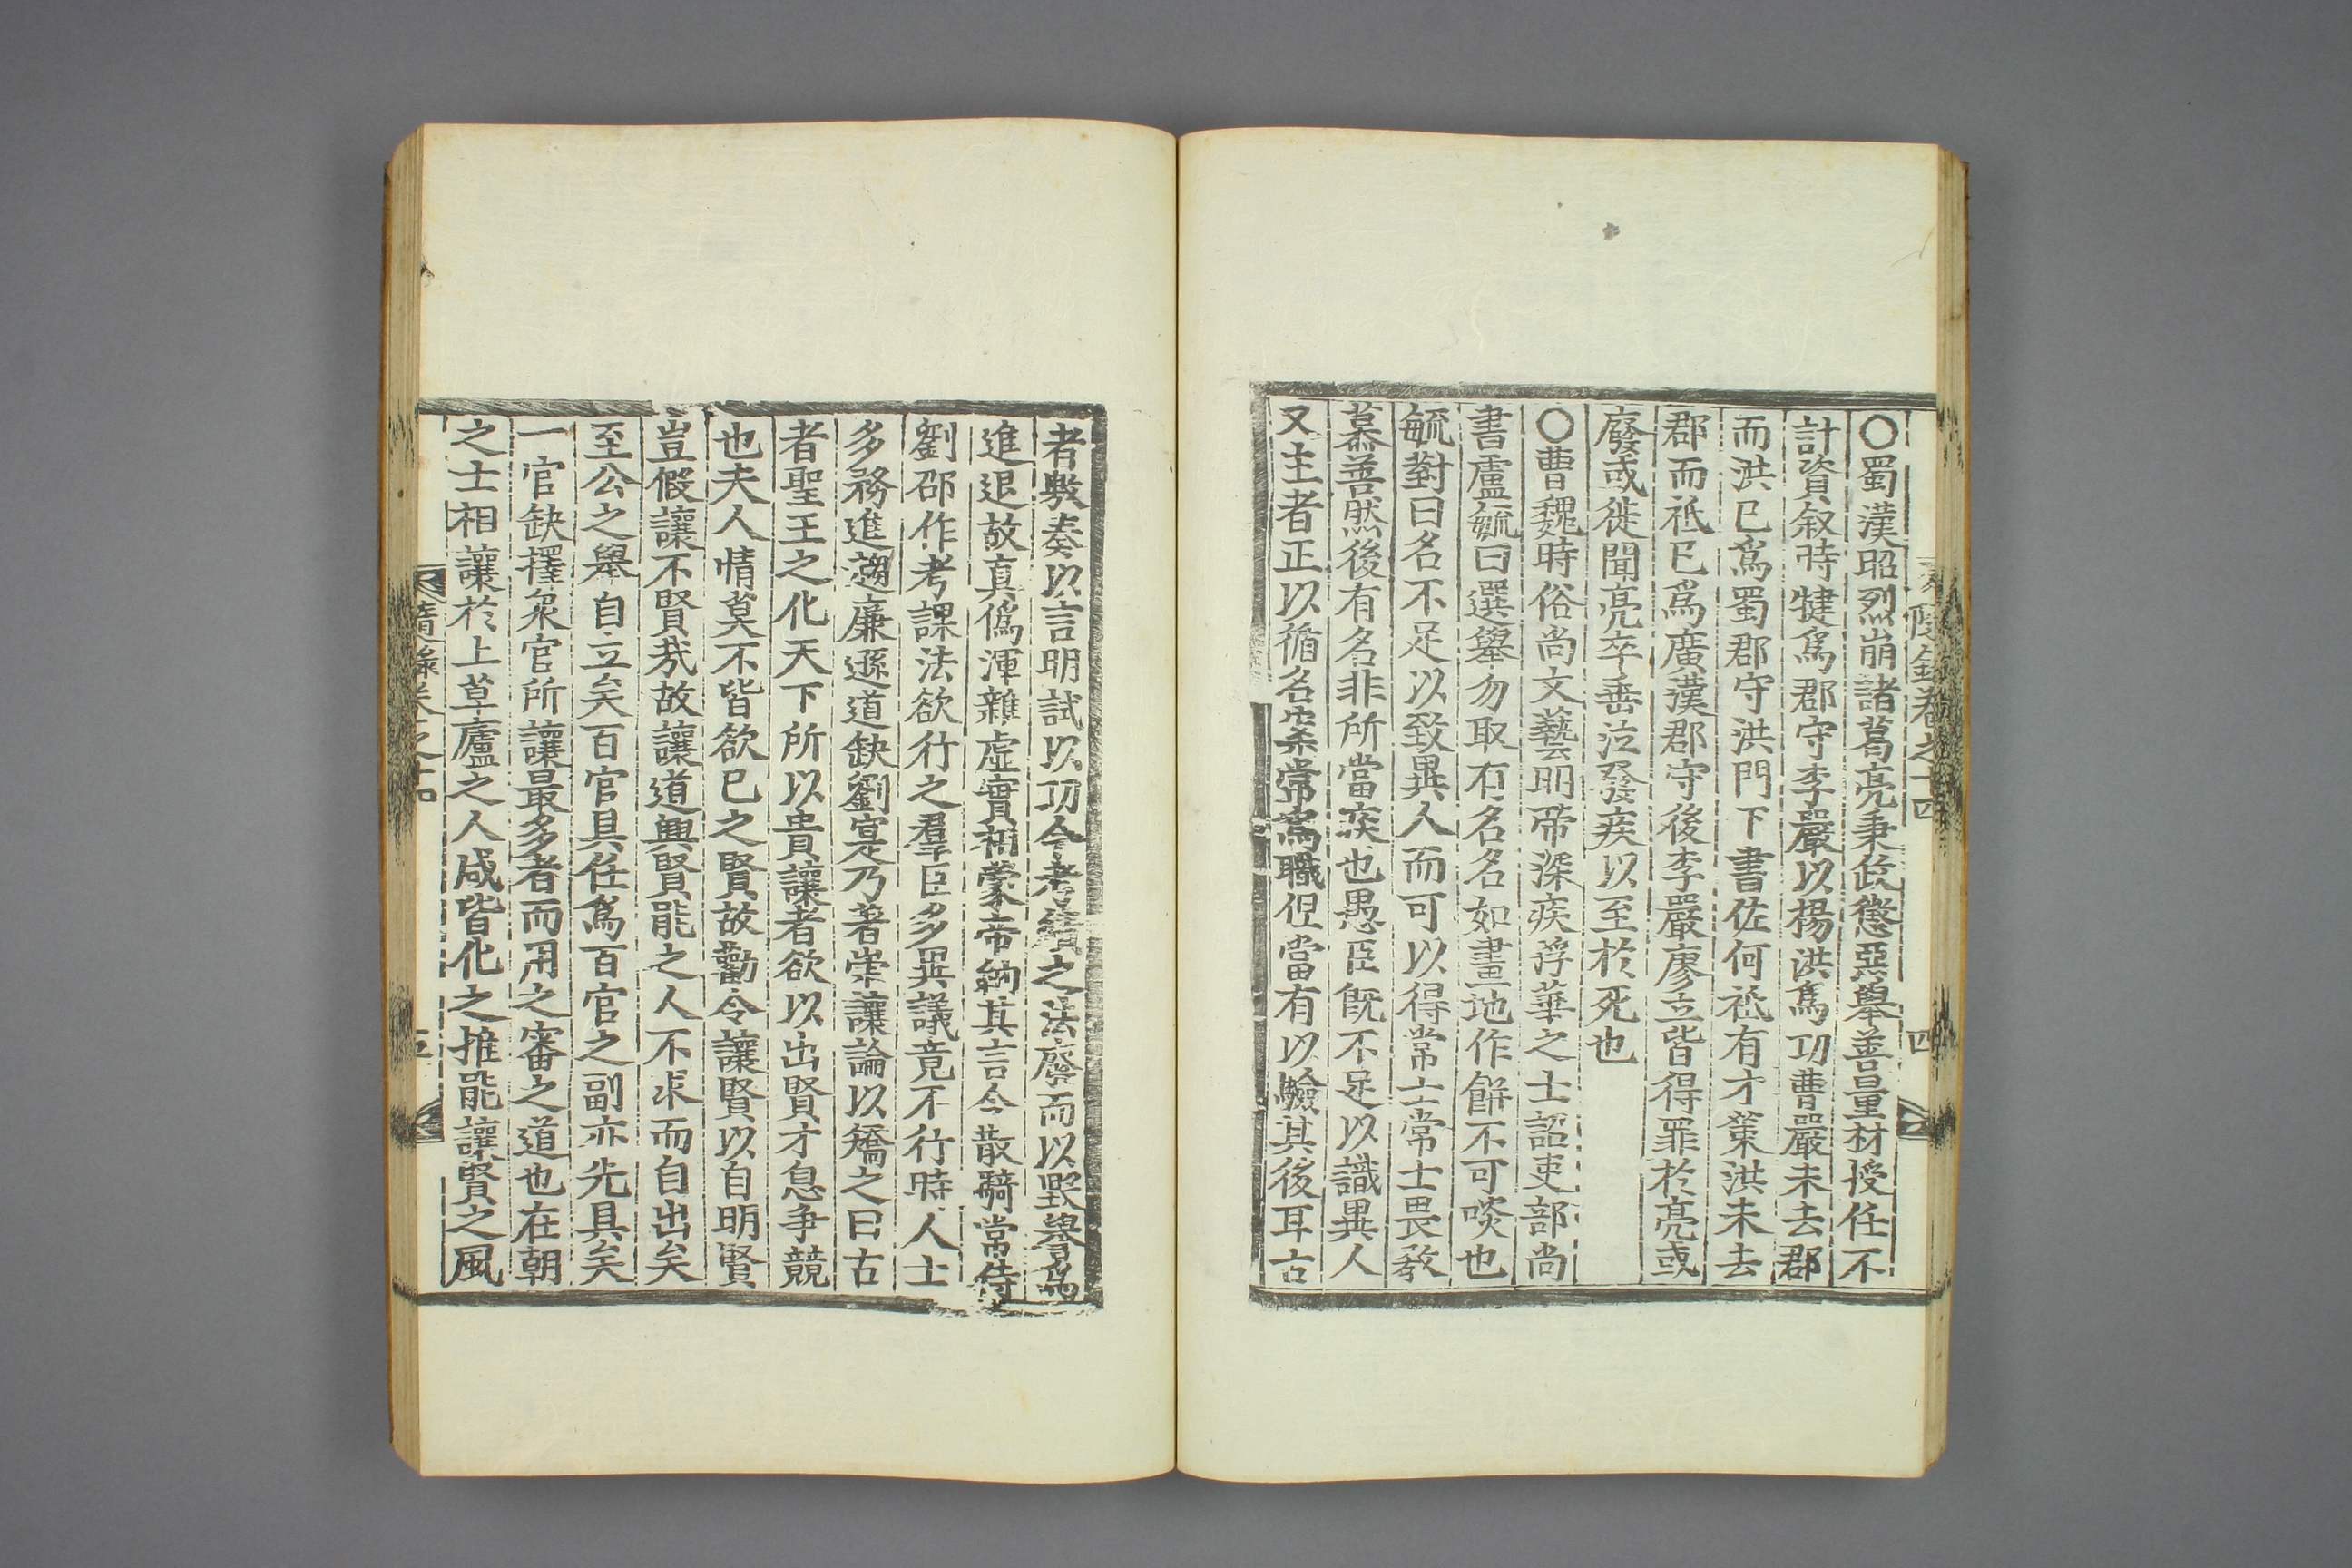 ○蜀漢昭烈崩諸葛亮秉政懲惡擧善量材授任不
計資敘時犍爲郡守李嚴以楊洪爲功曹嚴未去郡
而洪已爲蜀郡守洪門下書佐何祗有才策洪未去
郡而祗已爲廣漢郡守後李嚴廖立皆得罪於亮或
廢或徙聞亮卒垂泣發疾以至於死也
○曹魏時俗尙文藝明帝深疾浮華之士詔吏部尙
書盧毓曰選擧勿取有名名如畫地作餠不可啖也
毓對曰名不足以致異人而可以得常士常士畏敎
慕善然後有名非所當疾也愚臣旣不足以識異人
又主者正以循名案常爲職但當有以驗其後耳古
者敷奏以言明試以功今考績之法廢而以毁譽爲
進退故眞僞渾雜虛實相蒙帝納其言令散騎常侍
劉邵作考課法欲行之羣臣多異議竟不行時人士
多務進趨廉遜道缺劉寔乃著崇讓論以矯之曰古
者聖王之化天下所以貴讓者欲以出賢才息爭競
也夫人情莫不皆欲已之賢故勸令讓賢以自明賢
豈假讓不賢哉故讓道興賢能之人不求而自出矣
至公之擧自立矣百官具任爲百官之副亦先具矣
一官缺擇衆官所讓最多者而用之審之道也在朝
之士相讓於上草廬之人咸皆化之推能讓賢之風
隨錄卷之十四
四
五